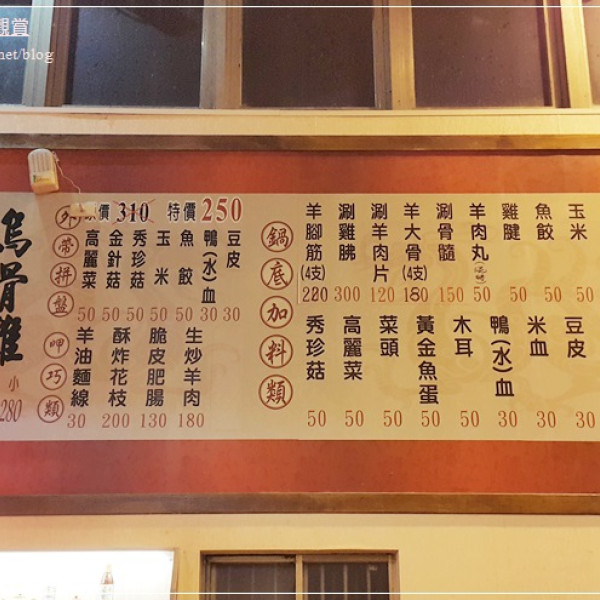 觀賞
net/blog
烏骨雞
小
280
外帶拼盤
原價 310 特價 250
高麗菜 50
金針菇 50
秀珍菇 50
玉米 50
魚餃 50
鴨(水)血 30
豆皮 30
呷巧類
羊油麵線 30
酥炸花枝 200
脆皮肥腸 130
生炒羊肉 180
鍋底加料類
羊腳筋(4支) 220
涮雞腿 300
涮羊肉片 120
羊大骨(4支) 180
涮骨髓 150
羊肉丸 50
雞腱 50
魚餃 50
玉米 50
秀珍菇 50
高麗菜 50
菜頭 50
黃金魚蛋 50
木耳 50
鴨(水)血 30
米血 30
豆皮 30